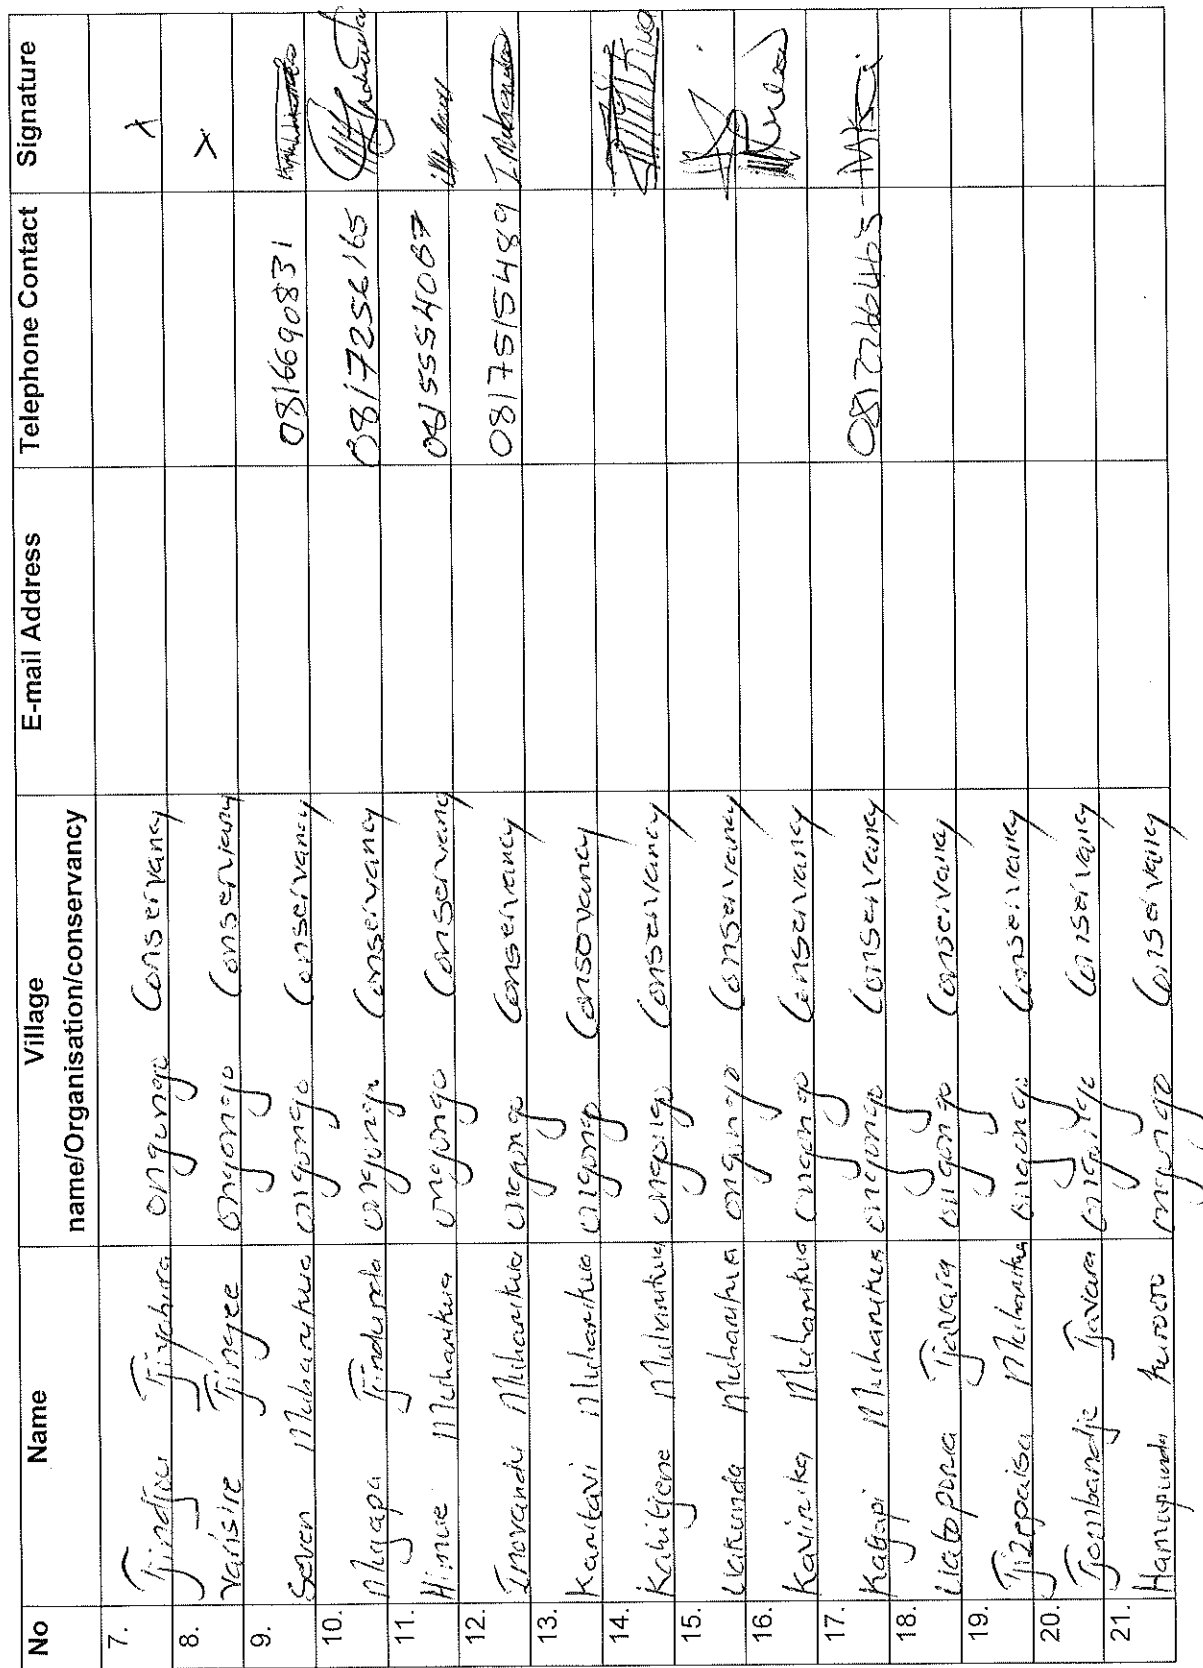 No Name Village name/Organisation/conservancy E-mail Address Telephone Contact Signature
7. Tjindjou ongongo Conservancy X
8. Varisire Tjingee Ongongo Conservancy X
9. Seven Muharukua ongongo Conservancy 0816690831
10. Mapapa Tjindunda ongongo Conservancy 0817256165
11. Himue Muharukua ongongo Conservancy 0815554067
12. Inovandu Muharukua ongongo Conservancy 0817515489
13. Karitavi Muharukua ongongo Consovancy
14. Kahitjene Muharukua ongongo Conservancy
15. Uakunda Muharukua ongongo Conservancy
16. Kavirika Muharukua ongongo Conservancy
17. Muharukua ongongo Conservancy
18. Uatoporua Tjavara ongongo Conservancy
19. Tjizepaisa Muharukua ongongo Conservancy
20. Tjombandje Tjavara ongongo Conservancy
21. Hamupunda ongongo Conservancy